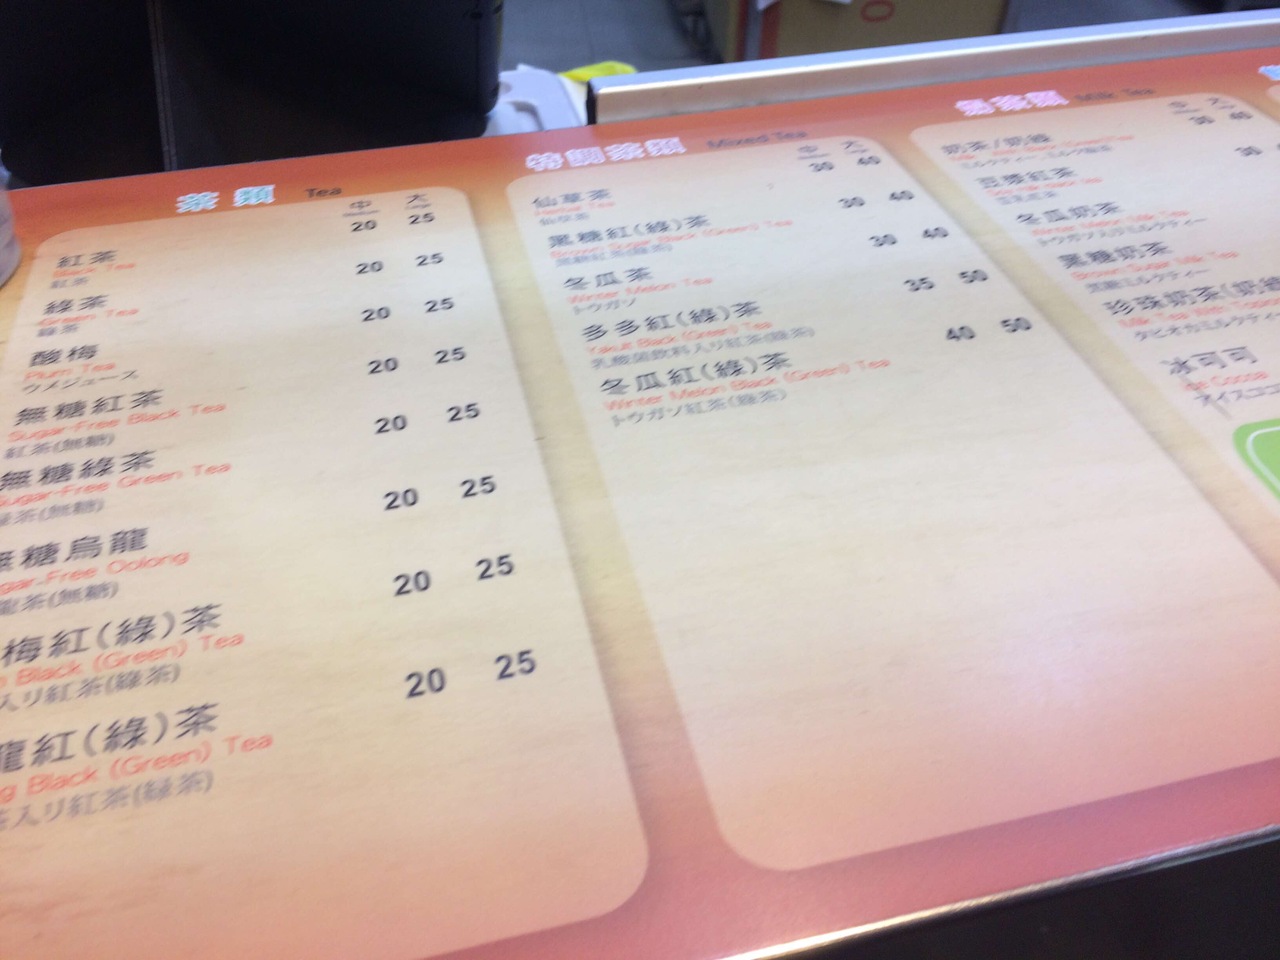 茶類 Tea
中 大
紅茶 20 25
Black Tea
紅茶
綠茶 20 25
Green Tea
緑茶
酸梅 20 25
Plum Tea
ウメジュース
無糖紅茶 20 25
Sugar-Free Black Tea
紅茶(無糖)
無糖綠茶 20 25
Sugar-Free Green Tea
緑茶(無糖)
無糖烏龍 20 25
gar-Free Oolong
龍茶(無糖)
梅紅(綠)茶 20 25
Black (Green) Tea
入り紅茶(緑茶)
龍紅(綠)茶 20 25
g Black (Green) Tea
茶入り紅茶(緑茶)
特調茶類 Mixed Tea
中 大
仙草茶 30 40
仙草茶
黑糖紅(綠)茶 30 40
Brown Sugar Black (Green) Tea
黒糖紅茶(緑茶)
冬瓜茶 30 40
Winter Melon Tea
トウガン
多多紅(綠)茶 35 50
Yakult Black (Green) Tea
乳酸菌飲料入り紅茶(緑茶)
冬瓜紅(綠)茶 40 50
Winter Melon Black (Green) Tea
トウガン紅茶(緑茶)
奶茶類 Milk Tea
中 大
奶茶/奶綠 30 40
豆漿紅茶 30
豆乳紅茶
冬瓜奶茶
Winter Melon Milk Tea
トウガン入りミルクティー
黑糖奶茶
Brown Sugar Milk Tea
黒糖ミルクティー
珍珠奶茶(奶綠
Milk Tea With Tapioc
タピオカミルクティ
冰可可
Ice Cocoa
アイスココ